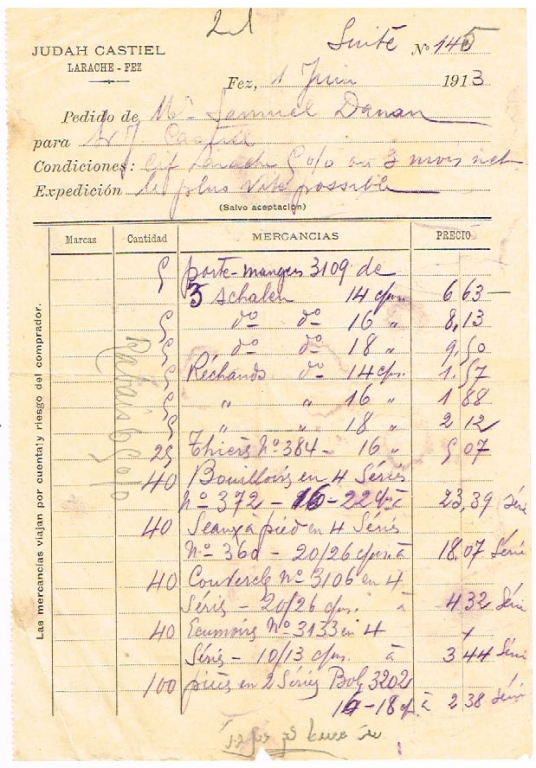 21
Suite Nº 145
JUDAH CASTIEL
LARACHE - FEZ
Fez, 1 Juin 1913
Pedido de Mr. Samuel Danan
para Sr J Castiel
Condiciones: Cif Larache 5 % ou 3 mois net
Expedición le plus vite possible
(Salvo aceptación)
Marcas Cantidad MERCANCIAS PRECIO
5 porte-mangers 3109 de
3 schalen 14 c/m. 6 63 —
5 dº dº 16 „ 8,13
5 dº dº 18 „ 9.50
5 Réchauds dº 14 c/m. 1.57
5 „ „ 16 „ 1 88
5 „ „ 18 „ 2 12
25 Thiers Nº 384 - 16 „ 5 07
40 Bouillois en 4 Séries
Nº 372 - 16 - 22 à 23,39 Série
40 Seaux à pied en 4 Séris
Nº 360 - 20/26 c/m à 18.07 Série
40 Couvercle nº 3106 en 4
Séris - 20/26 c/m. à 4 32 Série
40 Ecumoirs Nº 3133 en 4
Séris - 10/13 c/m. à 3 44 Série
100 pièces en 2 Séries Bol 3202
16 - 18 c/ à 2 38 Série
Rabais 5 o/o
Las mercancías viajan por cuenta y riesgo del comprador.